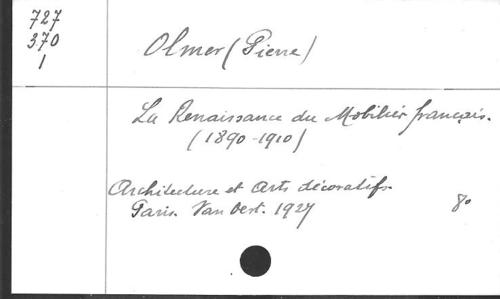 727
370
1
Olmer (Pierre)
La Renaissance du Mobilier français.
(1890-1910)
Architecture et Arts décoratifs.
Paris. Van Oest. 1927
8°